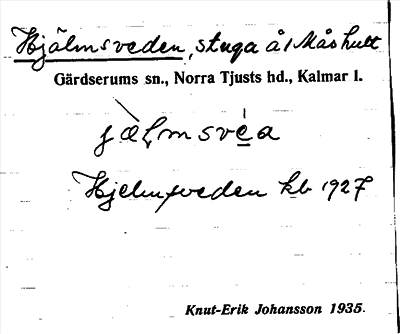 Hjälmsveden, stuga å 1 Måshult
Gärdserums sn., Norra Tjusts hd., Kalmar l.
jæl̥msvea
Hjelmsveden kb 1927
Knut-Erik Johansson 1935.